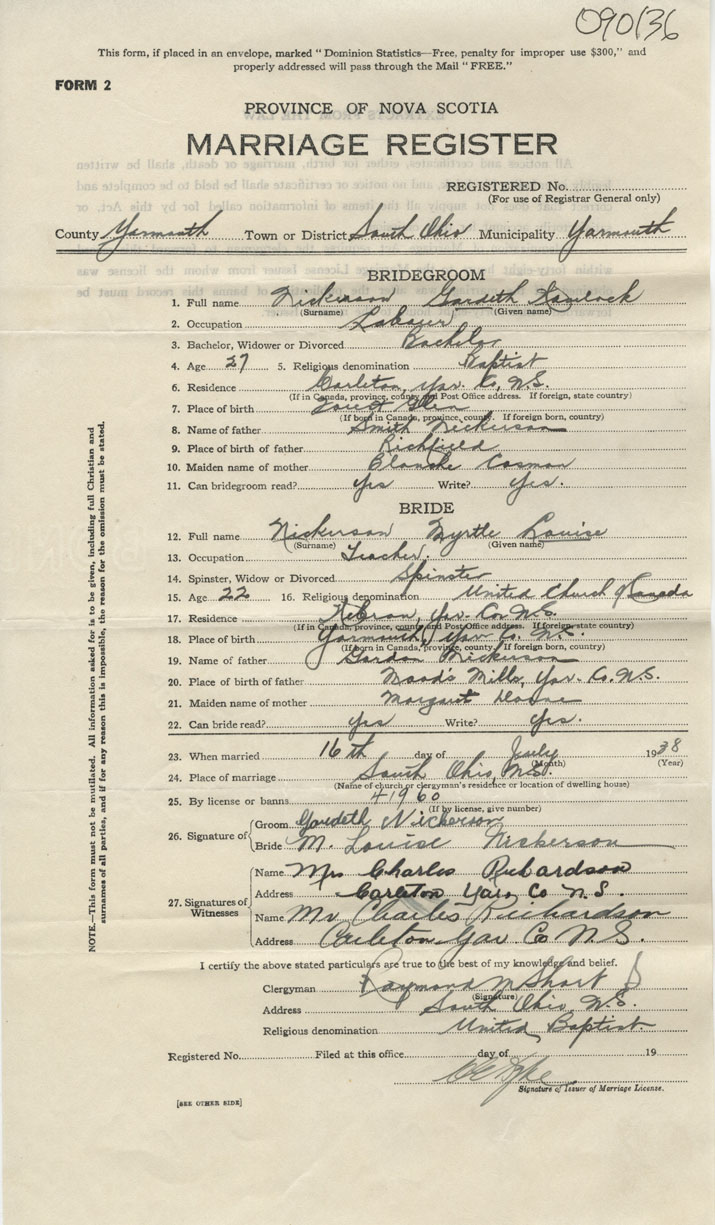 090136
This form, if placed in an envelope, marked "Dominion Statistics—Free, penalty for improper use $300," and
properly addressed will pass through the Mail "FREE."
FORM 2
PROVINCE OF NOVA SCOTIA
MARRIAGE REGISTER
REGISTERED No.
(For use of Registrar General only)
County Yarmouth Town or District South Ohio Municipality Yarmouth
BRIDEGROOM
1. Full name Nickerson Gardeth
(Surname) (Given name)
2. Occupation Labour
3. Bachelor, Widower or Divorced Bachelor
4. Age 27 5. Religious denomination Baptist
6. Residence Carleton, Yar. Co, N.S.
(If in Canada, province, county and Post Office address. If foreign, state country)
7. Place of birth Forest Glen
(If born in Canada, province, county. If foreign born, country)
8. Name of father Smith Nickerson
9. Place of birth of father Richfield
10. Maiden name of mother Blanche Cosman
11. Can bridegroom read? Yes Write? Yes.
BRIDE
12. Full name Nickerson Myrtle Louise
(Surname) (Given name)
13. Occupation Teacher.
14. Spinster, Widow or Divorced Spinster
15. Age 22 16. Religious denomination United Church of Canada
17. Residence Hebron, Yar. Co. N.S.
(If in Canada, province, county and Post Office address. If foreign, state country)
18. Place of birth Yarmouth, Yar. Co. N.S.
(If born in Canada, province, county. If foreign born, country)
19. Name of father Gordon Nickerson
20. Place of birth of father Moods Mills, Yar. Co. N.S.
21. Maiden name of mother Margaret
22. Can bride read? Yes Write? Yes.
23. When married 16th day of July 1938
(Month) (Year)
24. Place of marriage South Ohio, N.S.
(Name of church or clergyman's residence or location of dwelling house)
25. By license or banns 41960
(If by license, give number)
26. Signature of Groom Gardeth Nickerson
Bride M. Louise Nickerson
27. Signatures of Witnesses Name Mrs Charles Richardson
Address Carleton Yar. Co N.S.
Name Mr Charles Richardson
Address Carleton Yar Co N.S.
I certify the above stated particulars are true to the best of my knowledge and belief.
Clergyman Raymond M Short
(Signature)
Address South Ohio, N.S.
Religious denomination United Baptist
Registered No. Filed at this office day of 19
Signature of Issuer of Marriage License.
[SEE OTHER SIDE]
NOTE.—This form must not be mutilated. All information asked for is to be given, including full Christian and
surnames of all parties, and if for any reason this is impossible, the reason for the omission must be stated.